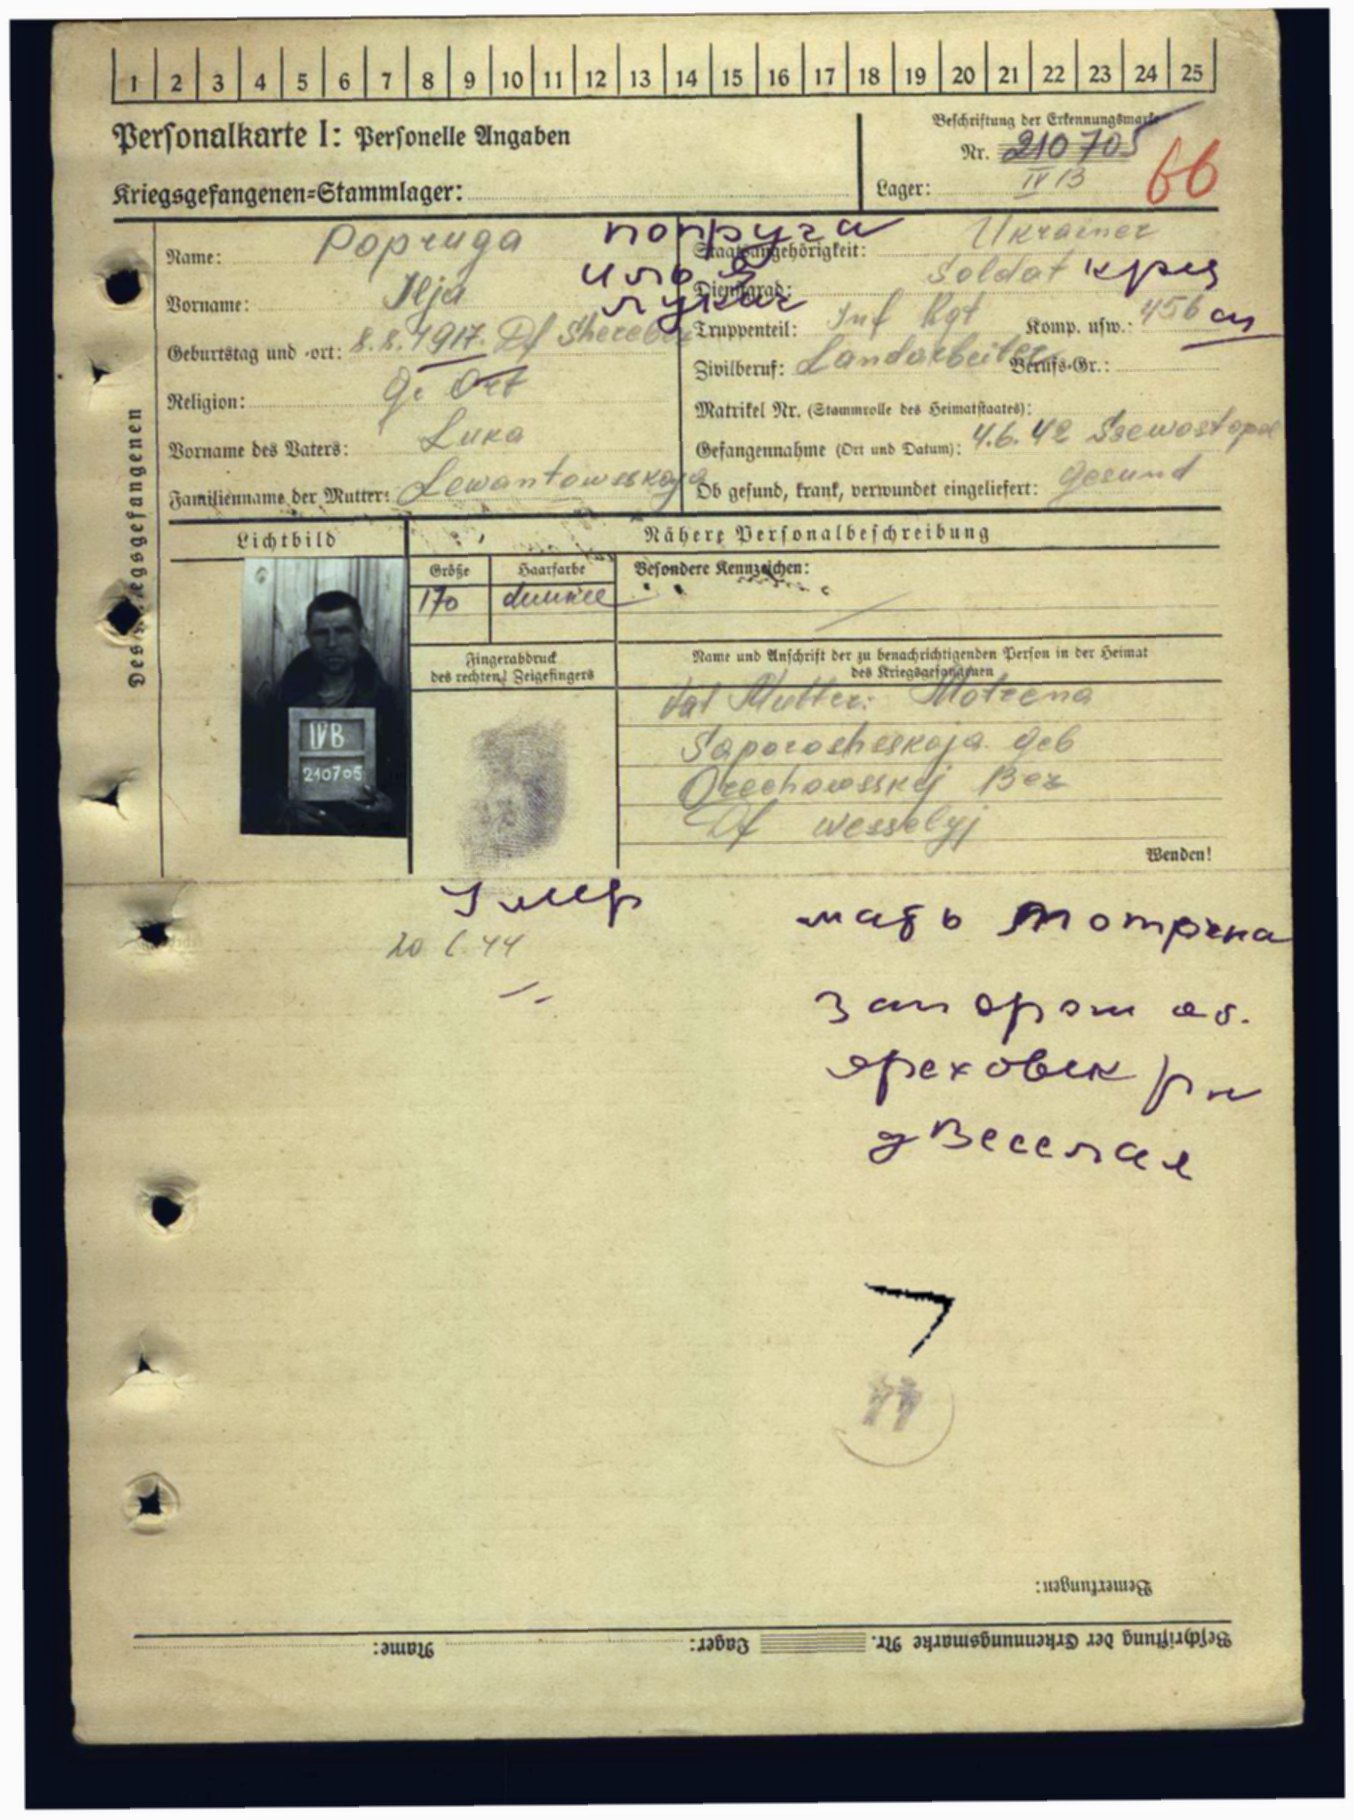 1 2 3 4 5 6 7 8 9 10 11 12 13 14 15 16 17 18 19 20 21 22 23 24 25
Personalkarte I: Personelle Angaben
Beschriftung der Erkennungsmarke
Nr. 210705
Kriegsgefangenen=Stammlager:
Lager: IV B
66
Des Kriegsgefangenen
Name: Popruga
попруга
Staatsangehörigkeit: Ukrainer
Vorname: Ilja
илья
Dienstgrad: Soldat
лукич
Truppenteil: Inf Rgt Komp. usw.: 456
Geburtstag und -ort: 8.8.1917. Df Sherebez
Zivilberuf: Landarbeiter Berufs-Gr.:
Religion: Gr. Ort
Matrikel Nr. (Stammrolle des Heimatstaates):
Vorname des Vaters: Luka
Gefangennahme (Ort und Datum): 4.6.42 Ssewastopol
Familienname der Mutter: Lewantowsskaja
Ob gesund, krank, verwundet eingeliefert: gesund
Lichtbild
Nähere Personalbeschreibung
Größe
Haarfarbe
Besondere Kennzeichen:
170
dunkel
Fingerabdruck
des rechten! Zeigefingers
Name und Anschrift der zu benachrichtigenden Person in der Heimat
des Kriegsgefangenen
IVB
210705
Mutter: Motrena
Saporoshsskaja Geb
Orechowsskij Bez
Df Wesselyj
Wenden!
Умер
мать Мотрена
запорож об.
ореховск рн
д Веселая
Bemerkungen:
Beschriftung der Erkennungsmarke Nr. Lager: Name: